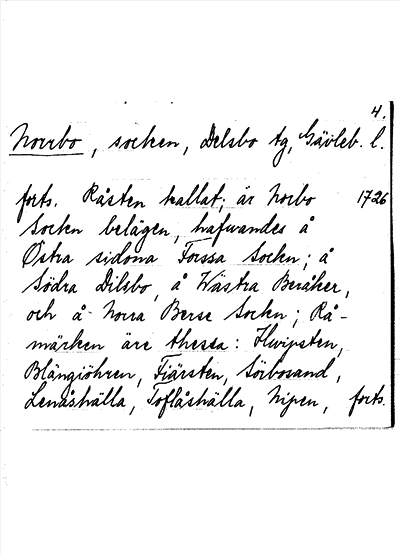 4.
Norrbo, socken, Delsbo tg, Gävleb. l.
forts. Råsten kallat; är Norbo 1726
Sockn belägen, hafwandes å
Östra sidona Forssa Sockn; å
Södra Dilsbo, å Wästra Beråker,
och å Norra Berse Sockn; Rå-
märken äre thessa: Hwipsten,
Blängiöhren, Fiärsten, Sörbosand,
Lenåshälla, Toflåshälla, Nipen, forts.